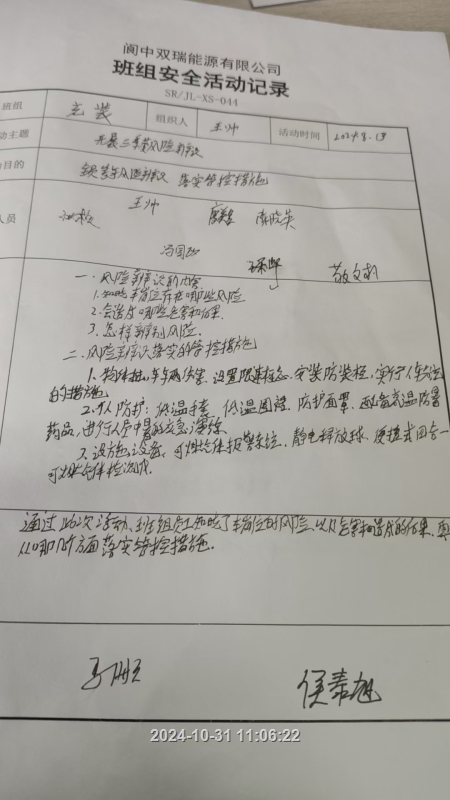 阆中双瑞能源有限公司
班组安全活动记录
SR/JL-XS-044
班组 充装 组织人 王帅 活动时间 2024.8.19
动主题 开展三季度风险辨识
目的 落实管控措施
人员 王帅
一、风险辨识的内容
1.知晓本岗位存在哪些风险
2.会造成哪些危害和后果
3.怎样辨别风险.
二、风险辨识落实的管控措施
1.物体打击,车辆伤害.设置限速标志.安装防装桩,实行人车分流
的措施
2.个人防护:低温手套 低温围裙.防护面罩,配备高温防暑
药品,进行人员中暑的应急演练
3.设施,设备,可燃气体报警系统,静电释放球,便携式四合一
可燃气体检测仪
通过此次活动,班组员工知晓了本岗位的风险,以及危害和造成的后果,
从哪几方面落实管控措施.
侯春旭
2024-10-31 11:06:22